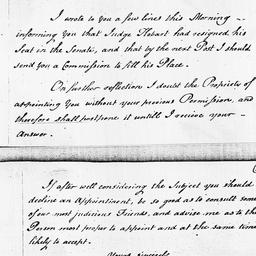 I wrote to you a few lines this Morning –
informing you that Judge Hobart had resigned his
Seat in the Senate, and that by the next Post I should
send you a Commission to fill his Place.
On further reflection I doubt the Propriety of
appointing you without your previous Permission, and
therefore shall postpone it untill I receive your –
answer.
If after well considering the Subject you should
decline an Appointment, be so good as to consult some
of our most judicious Friends, and advise me as to the
Person most proper to appoint and at the same time
likely to accept.
Yours sincerely